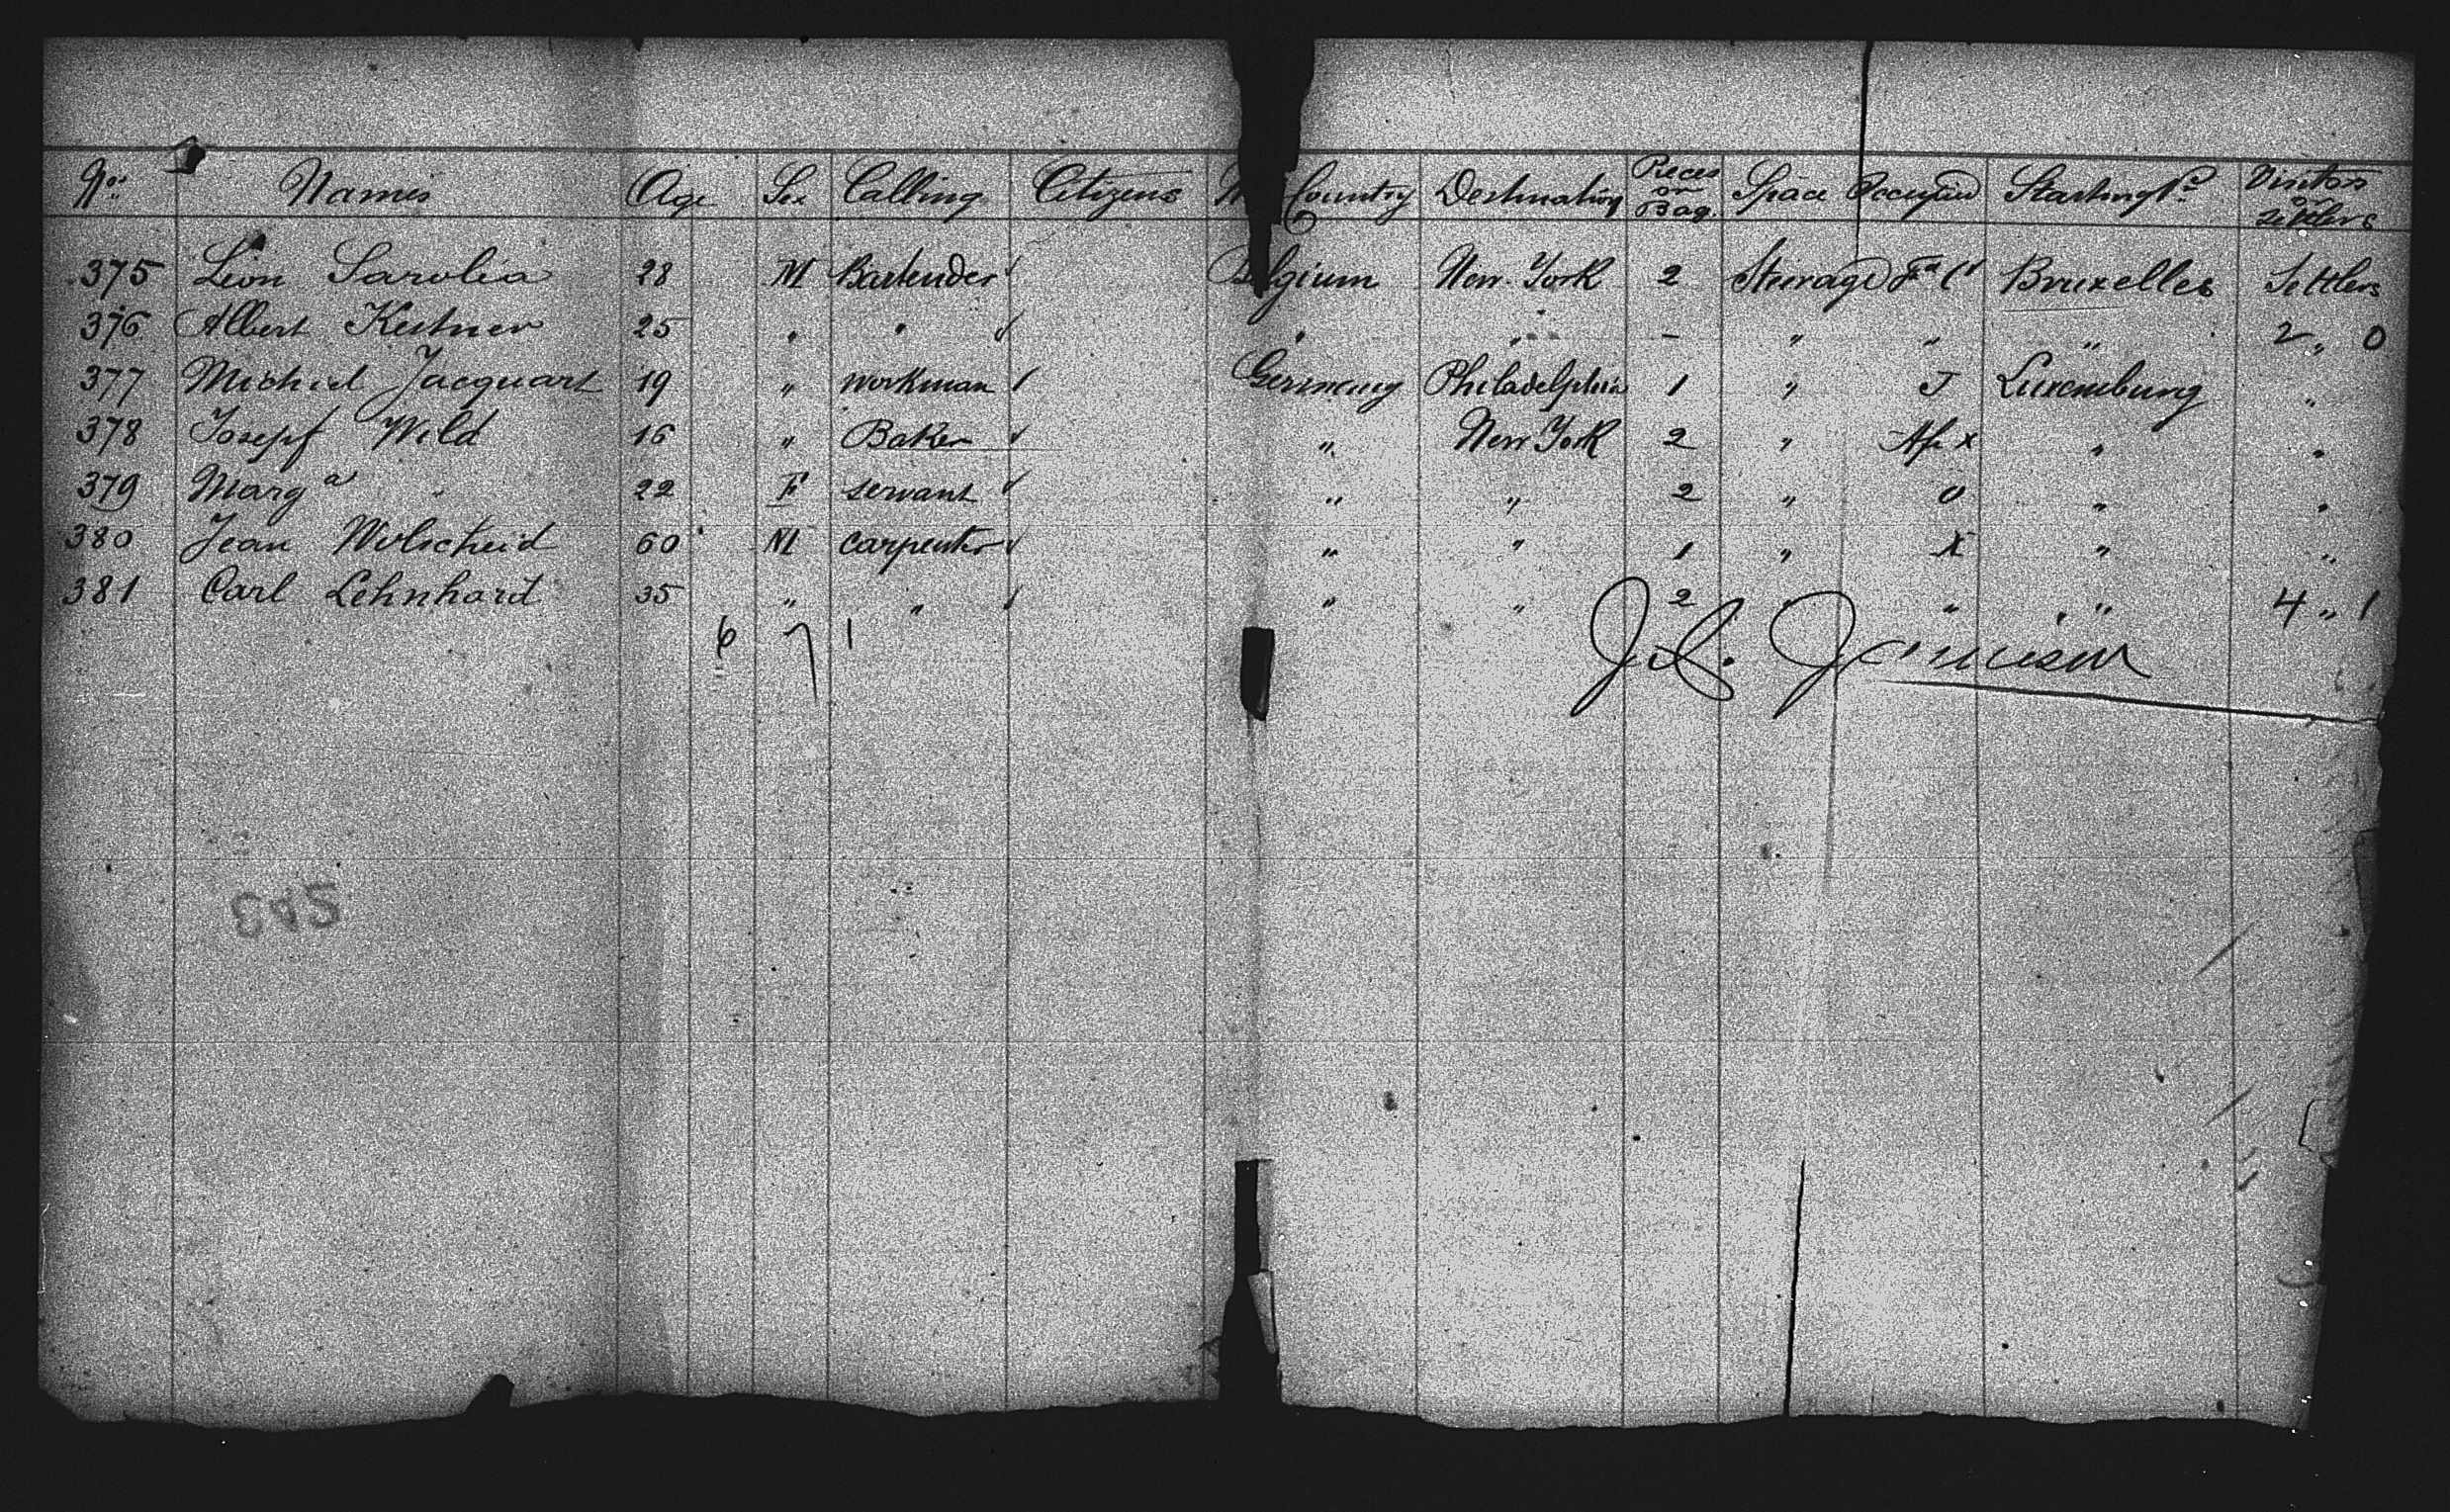 No. Names Age Sex Calling Citizens Country Destination Pieces on Bag. Space Occupied Starting P. Visitors or settlers
375 Léon Sarolia 28 M Bartender ✓ Belgium New York 2 Steerage Bruxelles Settlers
376 Albert Kestner 25 " " ✓ " " – " " " 2 " 0
377 Michiel Jacquart 19 " workman ✓ Germany Philadelphia 1 " J Luxemburg "
378 Josepf Wild 16 " Baker ✓ " New York 2 " x " "
379 Marg a " 22 F servant ✓ " " 2 " 0 " "
380 Jean Wolscheid 60 M carpenter ✓ " " 1 " X " "
381 Carl Lehnhard 35 " " ✓ " " 2 " " " 4 " 1
6 7 1
Jamison
342